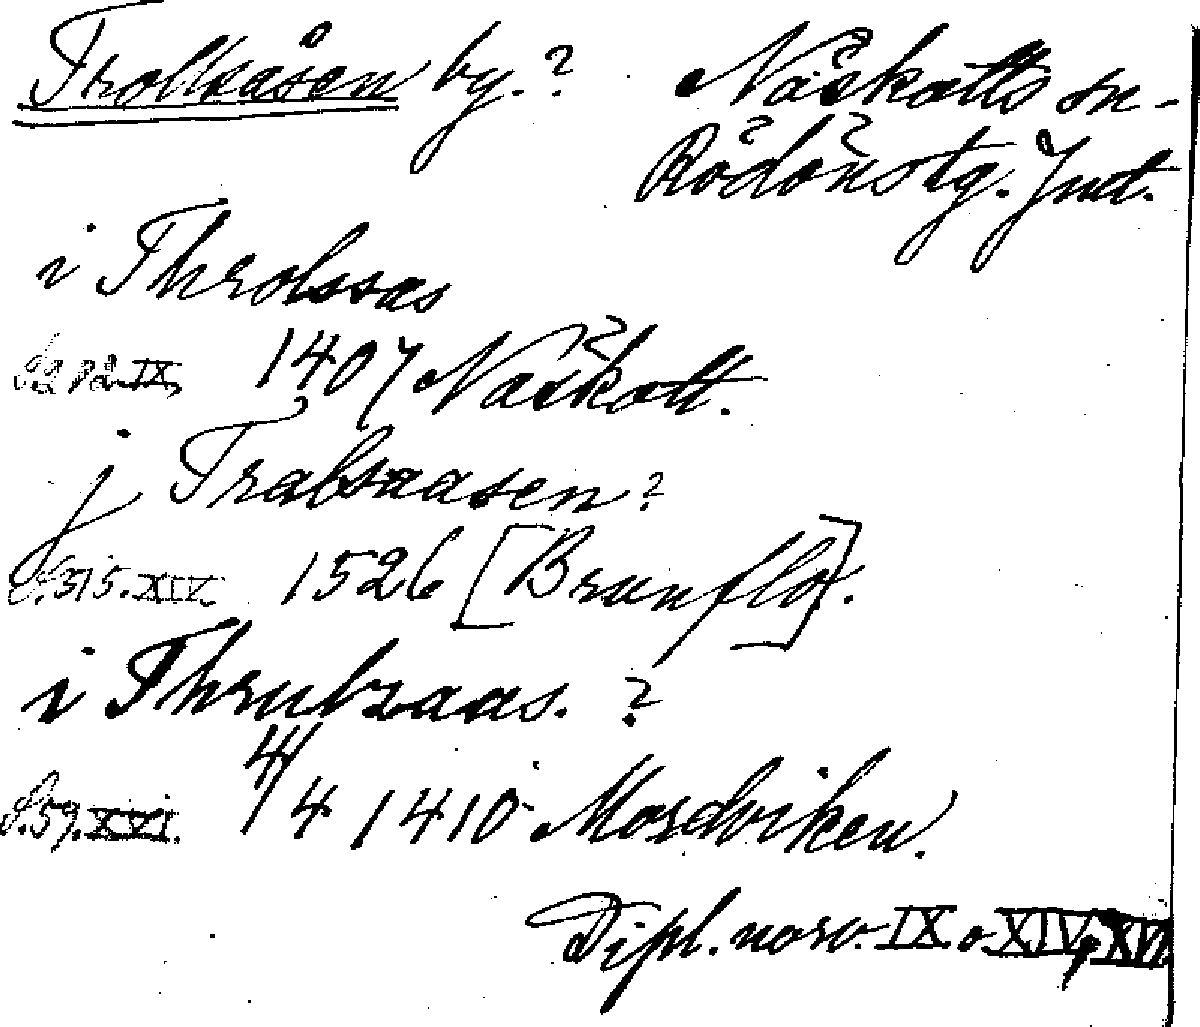 Trollsåsen by.? Näskotts sn.
Rödöns tg. Jmt.
i Throlssas
1407 Näskott.
j Tralsaasen?
S. 515. XIV. 1526 [Brunflo].
i Thrulzaas. ?
S. 59. XVI. 4/4 1410 Mordviken.
Dipl. norv. IX. o. XIV, XVI